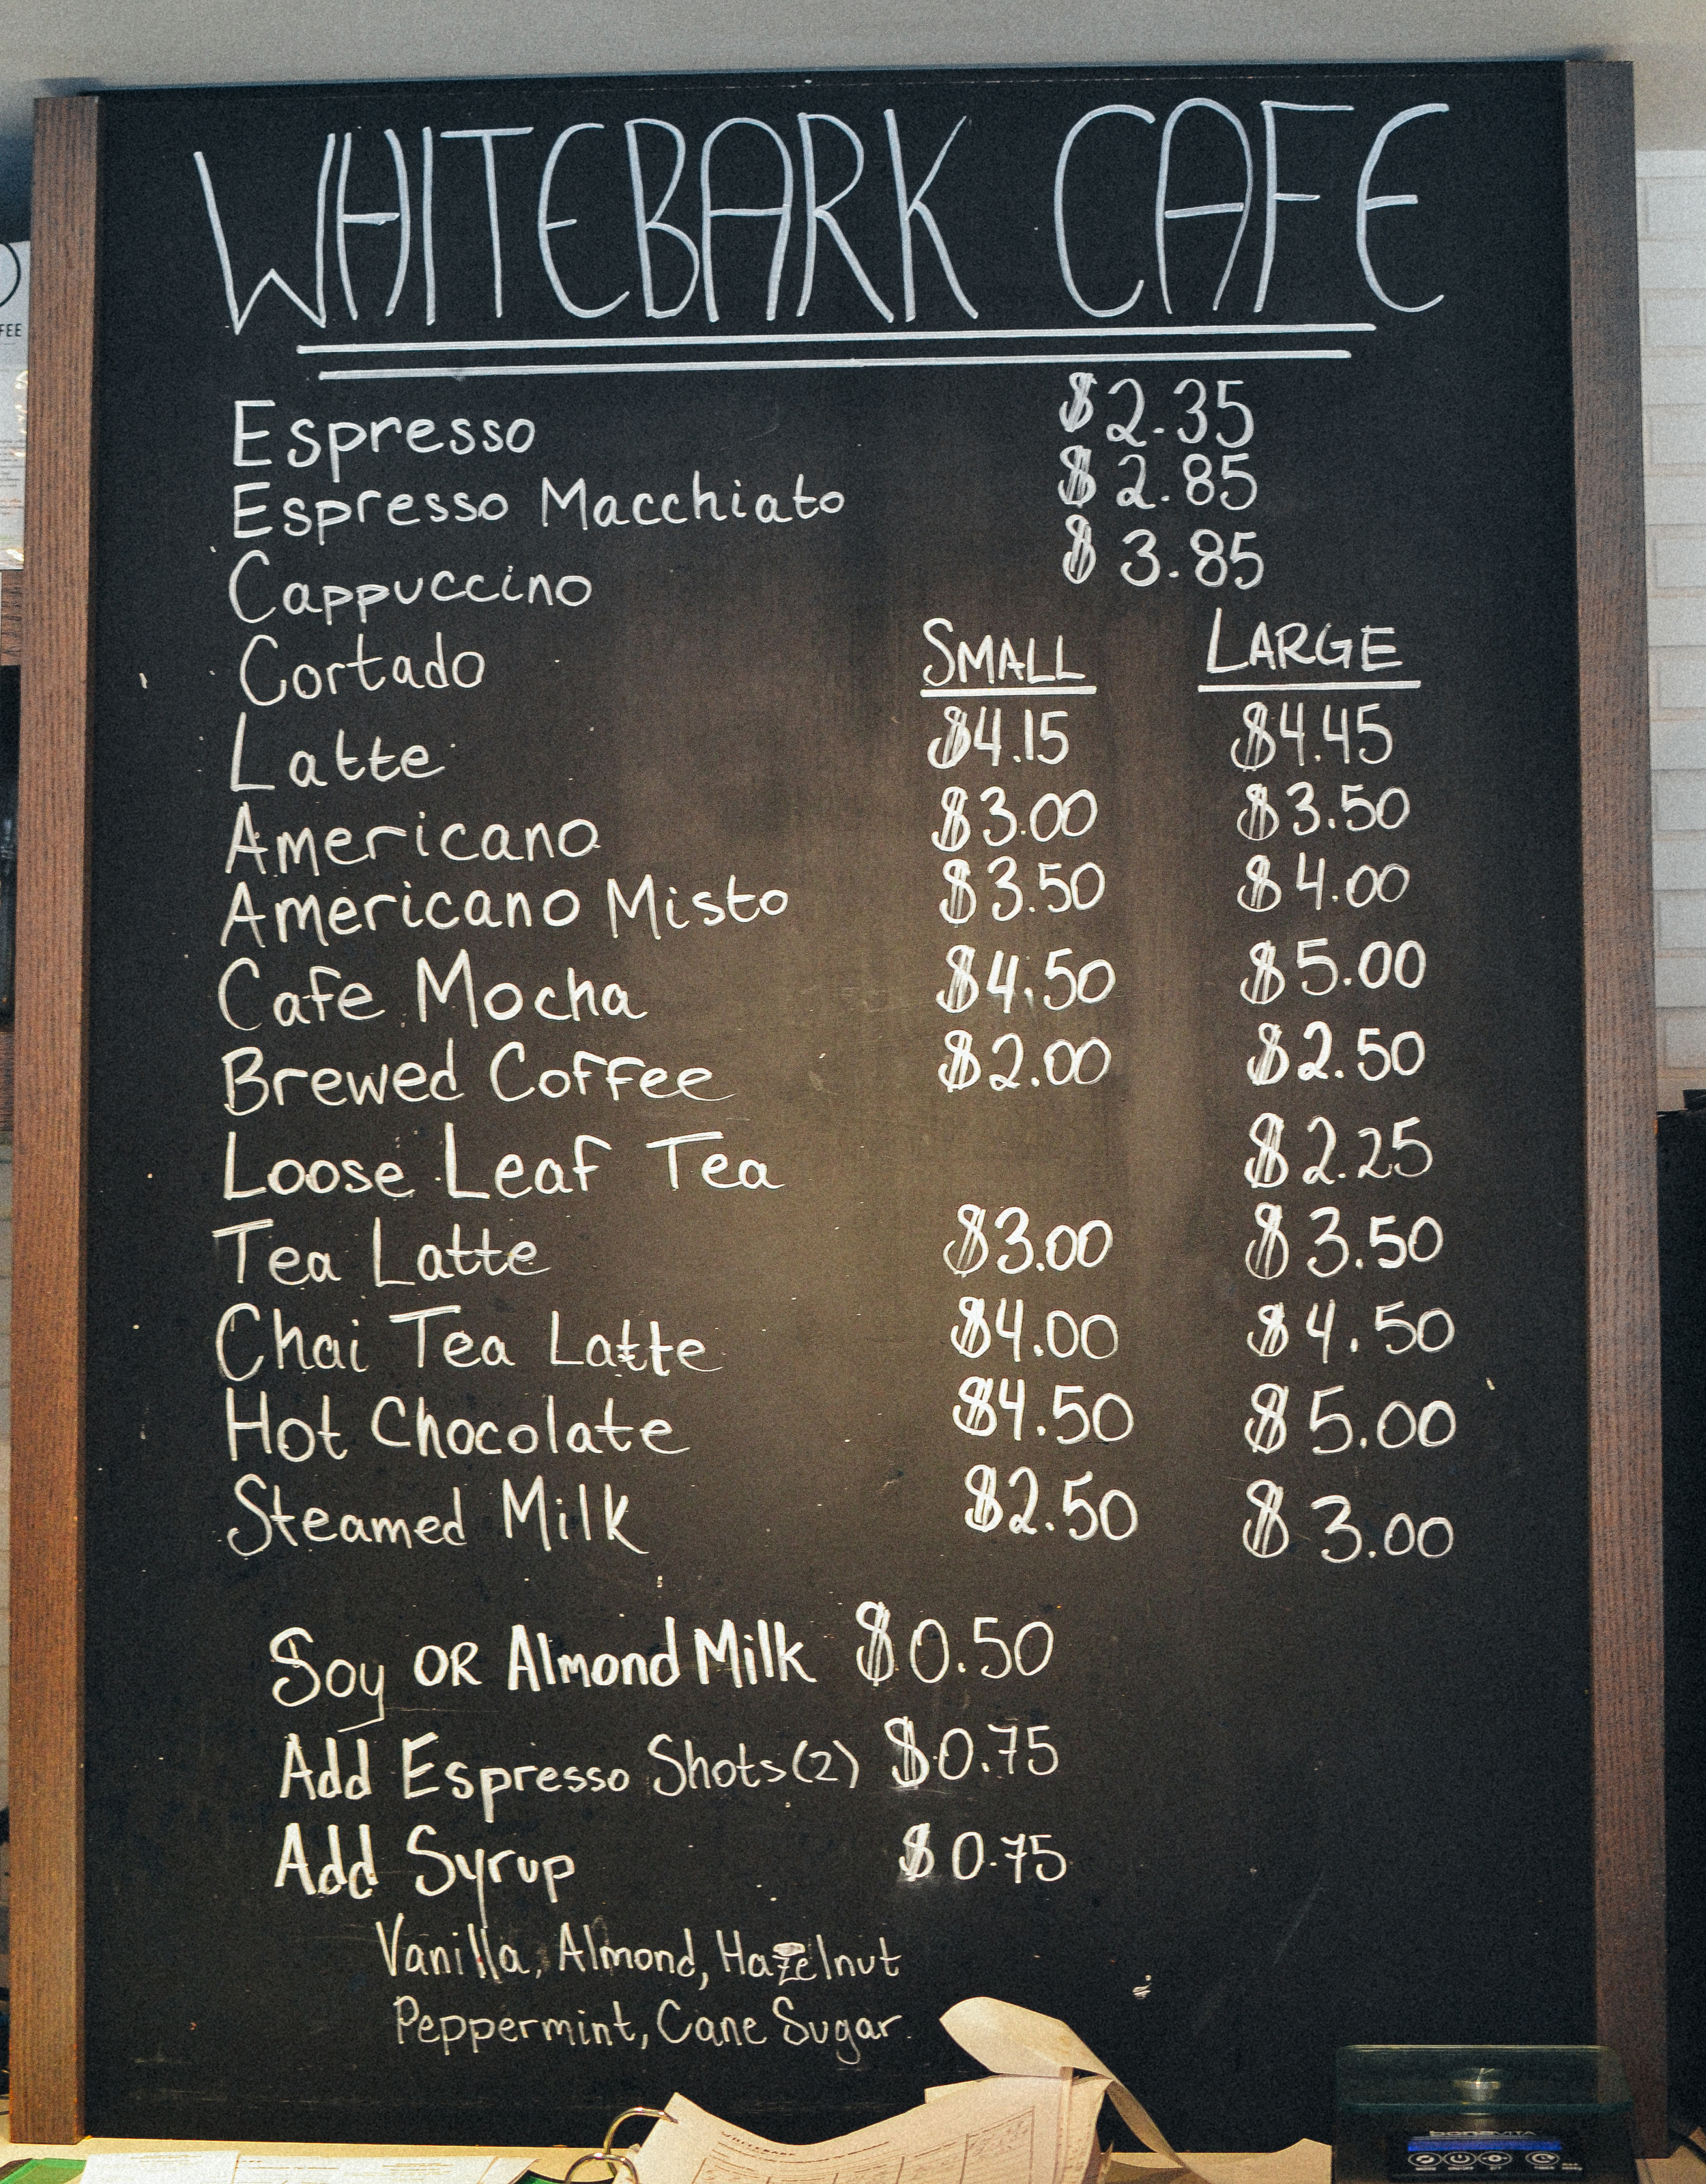 WHITEBARK CAFE
Espresso $2.35
Espresso Macchiato $2.85
Cappuccino $3.85
Cortado SMALL LARGE
Latte $4.15 $4.45
Americano $3.00 $3.50
Americano Misto $3.50 $4.00
Cafe Mocha $4.50 $5.00
Brewed Coffee $2.00 $2.50
Loose Leaf Tea $2.25
Tea Latte $3.00 $3.50
Chai Tea Latte $4.00 $4.50
Hot Chocolate $4.50 $5.00
Steamed Milk $2.50 $3.00
Soy OR Almond Milk $0.50
Add Espresso Shots(2) $0.75
Add Syrup $0.75
Vanilla, Almond, Hazelnut
Peppermint, Cane Sugar
FEE
bonaVITA